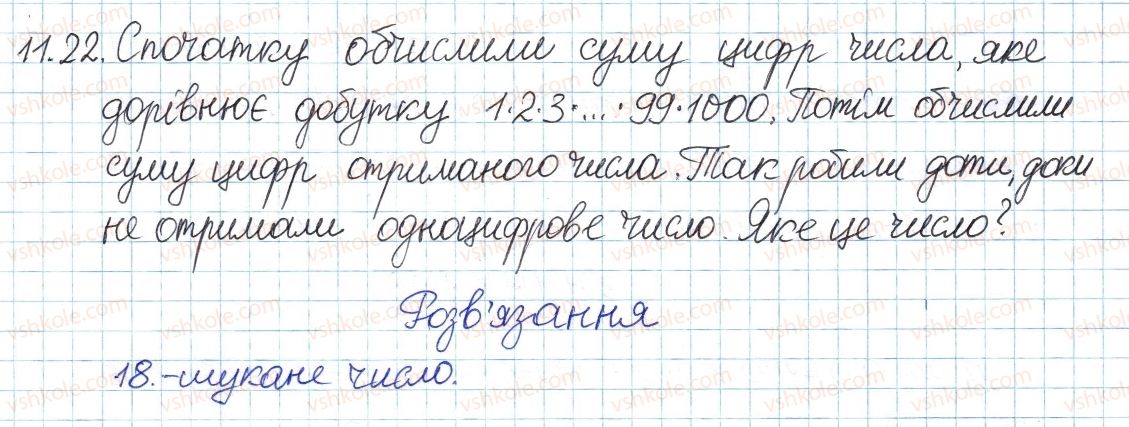 11.22. Спочатку обчислили суму цифр числа, яке
дорівнює добутку 1·2·3·...·99·1000. Потім обчислили
суму цифр отриманого числа. Так робили доти, доки
не отримали одноцифрове число. Яке це число?
Розв'язання
18.-шукане число.